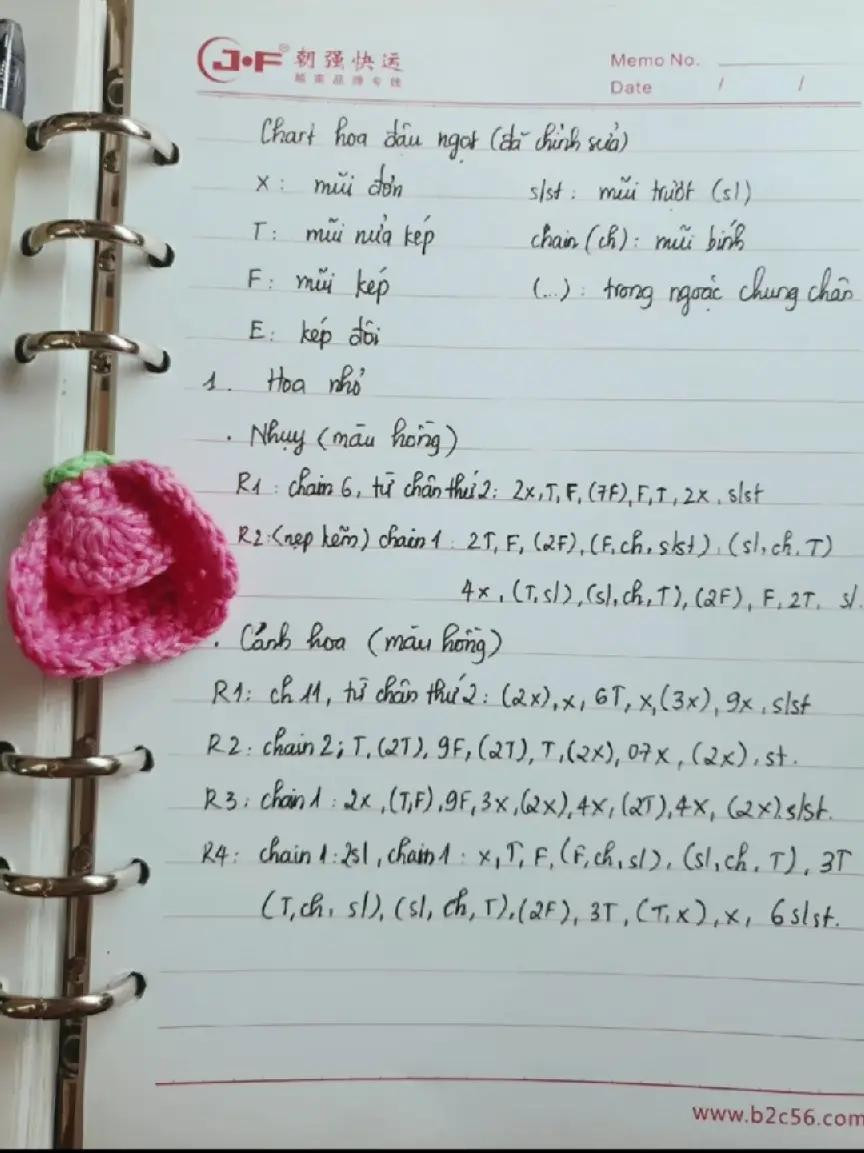 J•F® 朝强快运
越南品牌专线
Memo No.
Date / /
Chart hoa đậu ngọt (đã chỉnh sửa)
X : mũi đơn
slst : mũi trượt (sl)
T : mũi nửa kép
chain (ch) : mũi bính
F : mũi kép
(...) : trong ngoặc chung chân
E : kép đôi
1. Hoa nhỏ
. Nhụy (màu hồng)
R1 : chain 6, từ chân thứ 2 : 2x, T, F, (7F), F, T, 2x, slst
R2 : (nẹp kẽm) chain 1 : 2T, F, (2F), (F, ch, slst), (sl, ch, T)
4x, (T, sl), (sl, ch, T), (2F), F, 2T, sl.
. Cánh hoa (màu hồng)
R1 : ch 11, từ chân thứ 2 : (2x), x, 6T, x, (3x), 9x, slst
R2 : chain 2 ; T, (2T), 9F, (2T), T, (2x), 07x, (2x), st.
R3 : chain 1 : 2x, (T,F), 9F, 3x, (2x), 4x, (2T), 4x, (2x) slst.
R4 : chain 1 : 2sl, chain 1 : x, T, F, (F, ch, sl), (sl, ch, T), 3T
(T, ch, sl), (sl, ch, T), (2F), 3T, (T, x), x, 6 slst.
www.b2c56.com